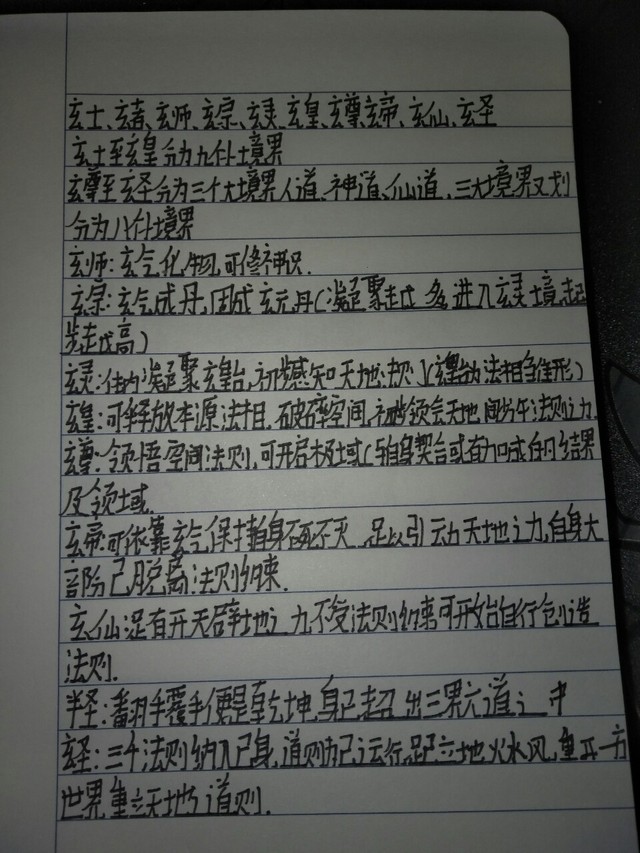 玄士、玄者、玄师、玄宗、玄灵、玄皇、玄尊、玄帝、玄仙、玄圣
玄士至玄皇分为九个小境界
玄尊至玄圣分为三个大境界人道、神道、仙道,三大境界又划
分为八个小境界
玄师:玄气化物,可修神识.
玄宗:玄气成丹,因成玄元丹(凝聚越多进入玄灵境起
步越高)
玄灵:体内凝聚玄皇台,初步感知天地法则(玄皇台为法相雏形)
玄皇:可释放本源法相,破碎空间,初步领会天地间法则之力
玄尊:领悟空间法则,可开启极域(与自身契合或有加成任何结界
及领域.
玄帝:可依靠玄气保持自身不死不灭,足以引动天地之力,自身大
部份已脱离法则约束.
玄仙:足有开天辟地之力,不受法则约束可开始自行创造
法则.
半圣:翻手覆手便是乾坤,身已超出三界六道之中
玄圣:三千法则纳入己身,道则为己运行,地火水风,重开一方
世界,重立天地道则.